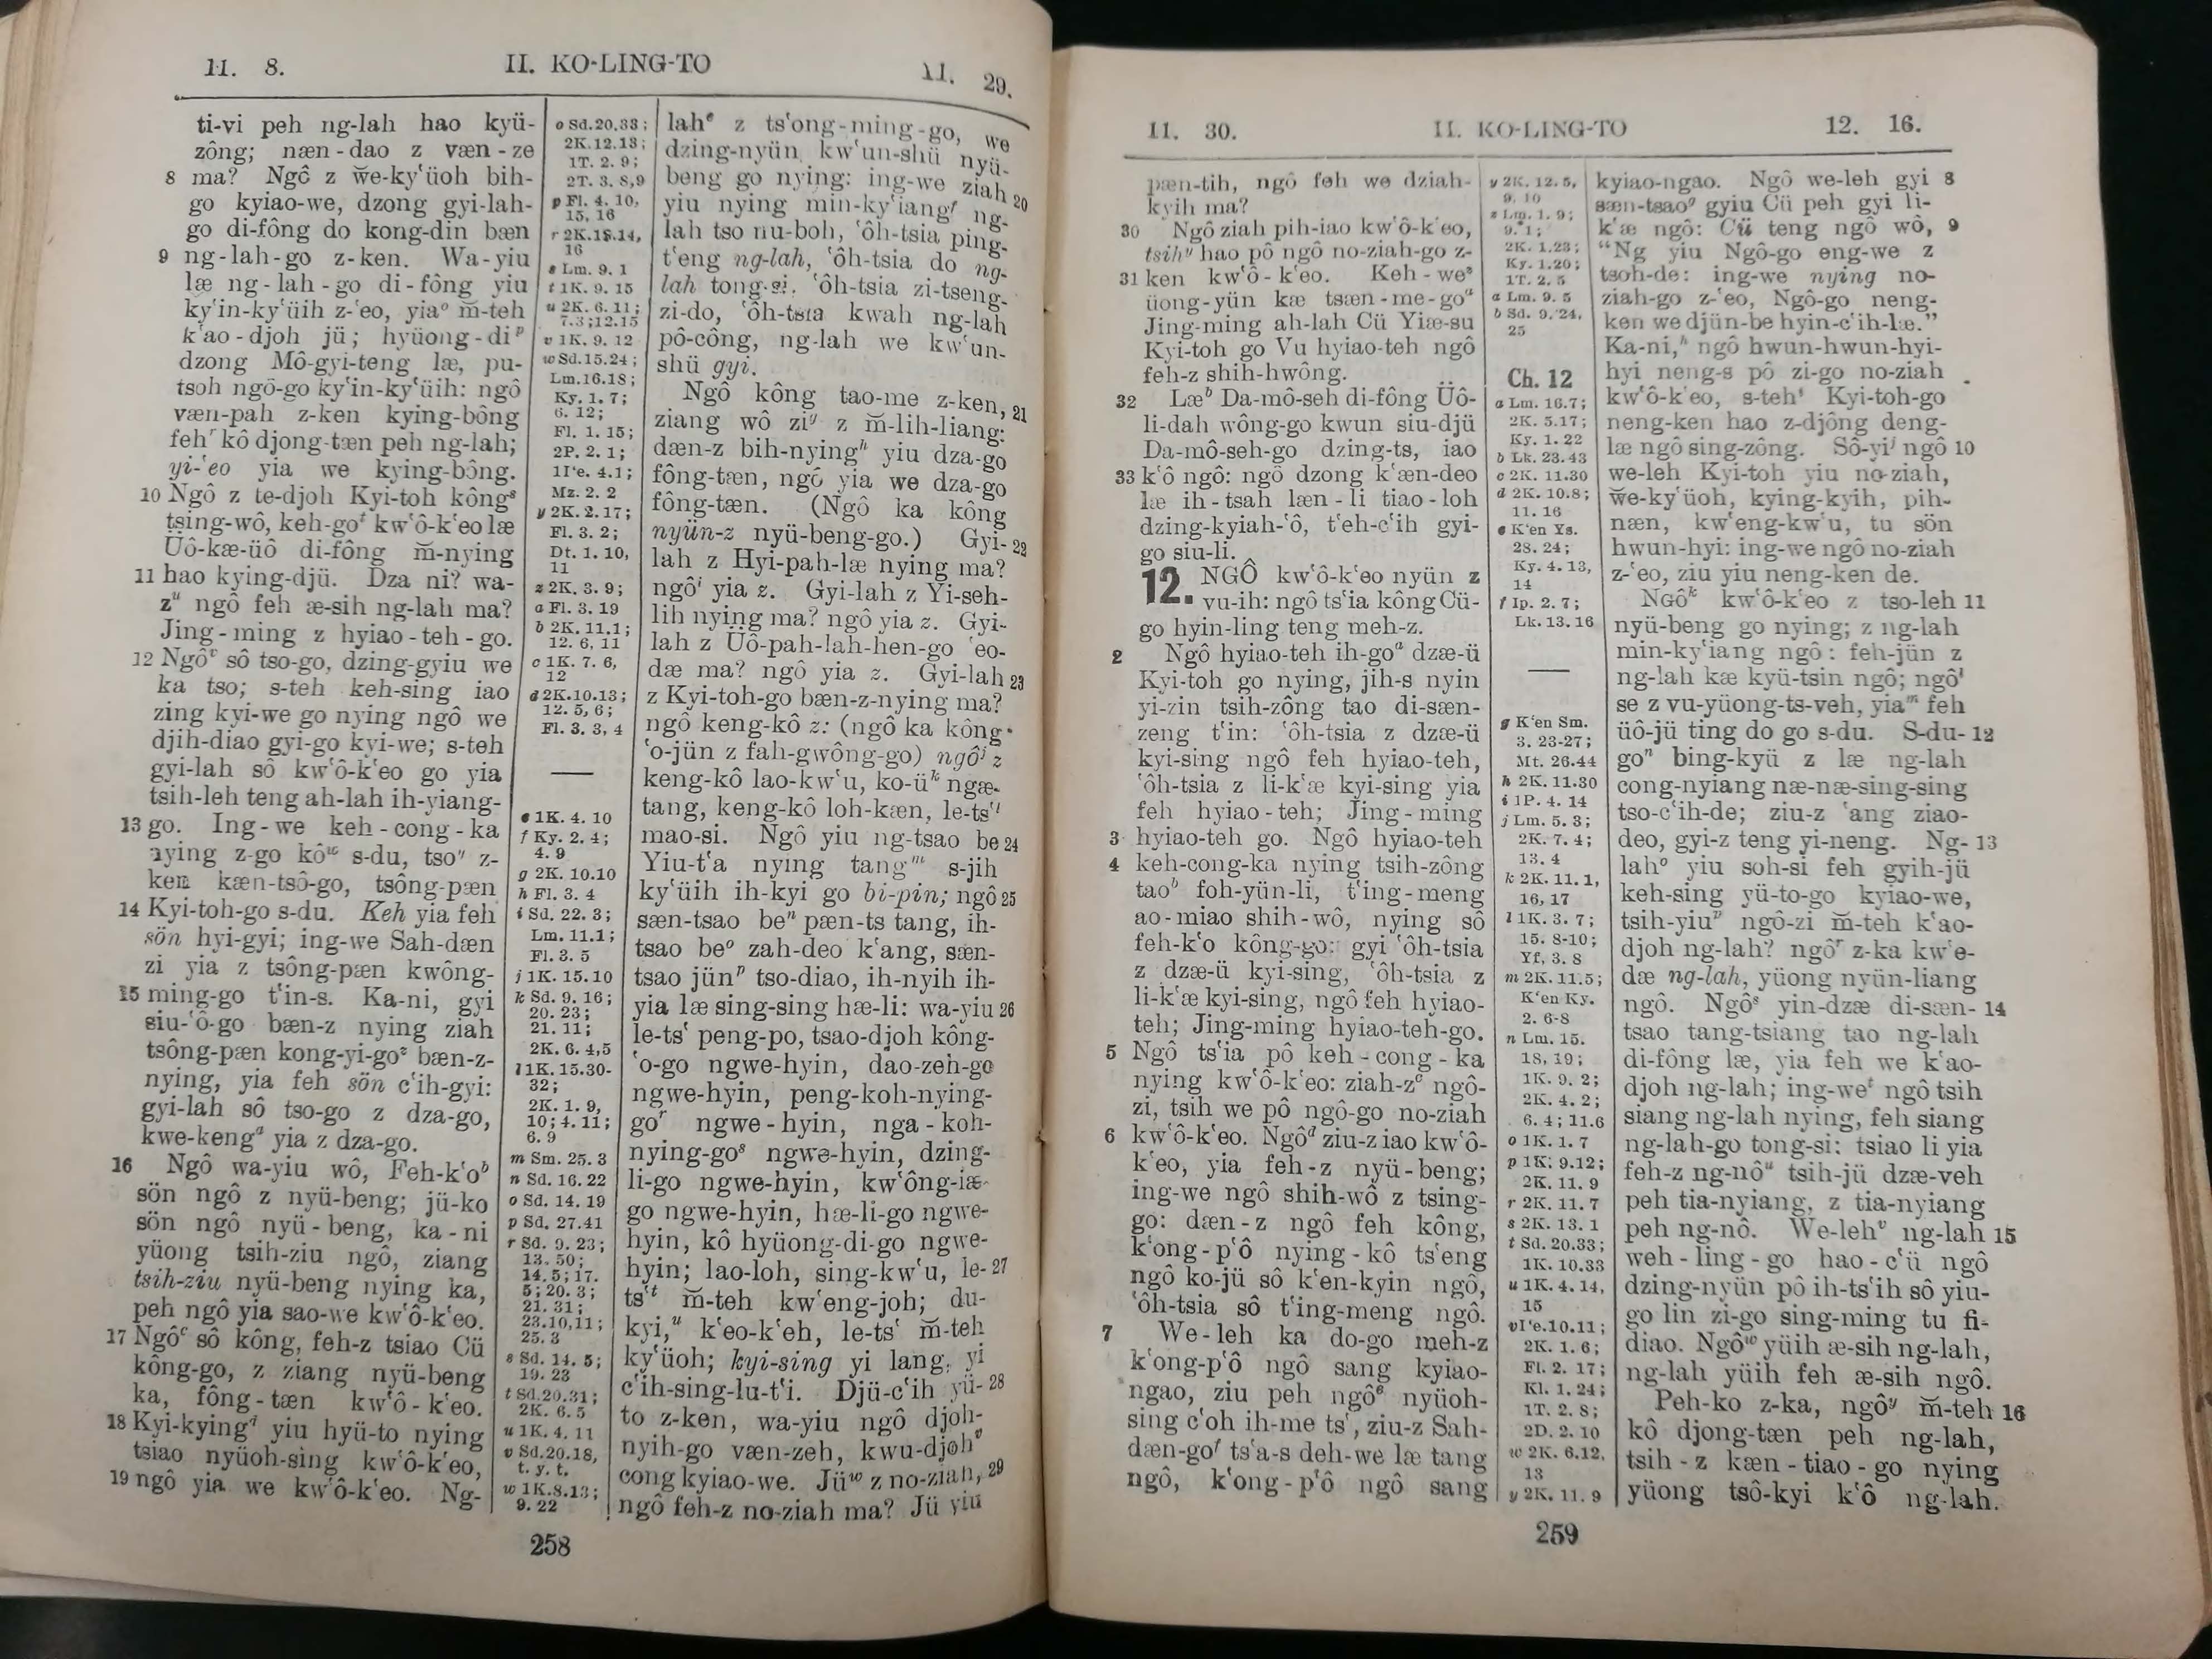 11. 8. II. KO-LING-TO 11. 29.
ti-vi peh ng-lah hao kyü-
zông; næn-dao z væn-ze
8 ma? Ngô z w̆e-ky‘üoh bih-
go kyiao-we, dzong gyi-lah-
go di-fông do kong-din bæn
9 ng-lah-go z-ken. Wa-yiu
læ ng-lah-go di-fông yiu
ky‘in-ky‘üih z-‘eo, yiaᵒ m̆-teh
k‘ao-djoh jü; hyüong-diᵖ
dzong Mô-gyi-teng læ, pu-
tsoh ngô-go ky‘in-ky‘üih: ngô
væn-pah z-ken kying-bông
fehʳ kô djong-tæn peh ng-lah;
yi-‘eo yia we kying-bông.
10 Ngô z te-djoh Kyi-toh kôngˢ
tsing-wô, keh-goᵗ kw‘ô-k‘eo læ
Üô-kæ-üô di-fông m̆-nying
11 hao kying-djü. Dza ni? wa-
zᵘ ngô feh æ-sih ng-lah ma?
Jing-ming z hyiao-teh-go.
12 Ngôᵛ sô tso-go, dzing-gyiu we
ka tso; s-teh keh-sing iao
zing kyi-we go nying ngô we
djih-diao gyi-go kyi-we; s-teh
gyi-lah sô kw‘ô-k‘eo go yia
tsih-leh teng ah-lah ih-yiang-
13 go. Ing-we keh-cong-ka
nying z-go kôʷ s-du, tsoʸ z-
ken kæn-tsô-go, tsông-pæn
14 Kyi-toh-go s-du. Keh yia feh
sön hyi-gyi; ing-we Sah-dæn
zi yia z tsông-pæn kwông-
15 ming-go t‘in-s. Ka-ni, gyi
siu-‘ô-go bæn-z nying ziah
tsông-pæn kong-yi-goᶻ bæn-z-
nying, yia feh sön c‘ih-gyi:
gyi-lah sô tso-go z dza-go,
kwe-kengᵃ yia z dza-go.
16 Ngô wa-yiu wô, Feh-k‘oᵇ
sön ngô z nyü-beng; jü-ko
sön ngô nyü-beng, ka-ni
yüong tsih-ziu ngô, ziang
tsih-ziu nyü-beng nying ka,
peh ngô yia sao-we kw‘ô-k‘eo.
17 Ngôᶜ sô kông, feh-z tsiao Cü
kông-go, z ziang nyü-beng
ka, fông-tæn kw‘ô-k‘eo.
18 Kyi-kyingᵈ yiu hyü-to nying
tsiao nyüoh-sing kw‘ô-k‘eo,
19 ngô yia we kw‘ô-k‘eo. Ng-
o Sd.20.33;
2K.12.13;
1T. 2. 9;
2T. 3. 8,9
p Fl. 4. 10,
15, 16
r 2K.18.14,
16
s Lm. 9. 1
t 1K. 9. 15
u 2K. 6. 11;
7.3;12.15
v 1K. 9. 12
w Sd.15.24;
Lm.16.18;
Ky. 1. 7;
6. 12;
Fl. 1. 15;
2P. 2. 1;
1I‘e. 4.1;
Mz. 2. 2
y 2K. 2.17;
Fl. 3. 2;
Dt. 1. 10,
11
z 2K. 3. 9;
a Fl. 3. 19
b 2K. 11.1;
12. 6, 11
c 1K. 7. 6,
12
d 2K.10.13;
12. 5, 6;
Fl. 3. 3, 4
e 1K. 4. 10
f Ky. 2. 4;
4. 9
g 2K. 10.10
h Fl. 3. 4
i Sd. 22. 3;
Lm. 11.1;
Fl. 3. 5
j 1K. 15.10
k Sd. 9. 16;
20. 23;
21. 11;
2K. 6. 4,5
l 1K. 15.30-
32;
2K. 1. 9,
10; 4. 11;
6. 9
m Sm. 25. 3
n Sd. 16. 22
o Sd. 14. 19
p Sd. 27.41
r Sd. 9. 23;
13. 50;
14. 5; 17.
5; 20. 3;
21. 31;
23.10,11;
25. 3
s Sd. 14. 5;
19. 23
t Sd.20.31;
2K. 6. 5
u 1K. 4. 11
v Sd.20.18,
t. y. t.
w 1K.8.13;
9. 22
lahᵉ z ts‘ong-ming-go, we
dzing-nyün kw‘un-shü nyü-
beng go nying: ing-we ziah 20
yiu nying min-ky‘iangᶠ ng-
lah tso nu-boh, ‘ôh-tsia ping-
t‘eng ng-lah, ‘ôh-tsia do ng-
lah tong-si, ‘ôh-tsia zi-tseng-
zi-do, ‘ôh-tsia kwah ng-lah
pô-công, ng-lah we kw‘un-
shü gyi.
Ngô kông tao-me z-ken, 21
ziang wô ziᵍ z m̆-lih-liang:
dæn-z bih-nyingʰ yiu dza-go
fông-tæn, ngô yia we dza-go
fông-tæn. (Ngô ka kông
nyün-z nyü-beng-go.) Gyi- 22
lah z Hyi-pah-læ nying ma?
ngôⁱ yia z. Gyi-lah z Yi-seh-
lih nying ma? ngô yia z. Gyi-
lah z Üô-pah-lah-hen-go ‘eo-
dæ ma? ngô yia z. Gyi-lah 23
z Kyi-toh-go bæn-z-nying ma?
ngô keng-kô z: (ngô ka kông
‘o-jün z fah-gwông-go) ngôʲ z
keng-kô lao-kw‘u, ko-üᵏ ngæ-
tang, keng-kô loh-kæn, le-ts‘ˡ
mao-si. Ngô yiu ng-tsao be 24
Yiu-t‘a nying tangᵐ s-jih
ky‘üih ih-kyi go bi-pin; ngô 25
sæn-tsao beⁿ pæn-ts tang, ih-
tsao beᵒ zah-deo k‘ang, sæn-
tsao jünᵖ tso-diao, ih-nyih ih-
yia læ sing-sing hæ-li: wa-yiu 26
le-ts‘ peng-po, tsao-djoh kông-
‘o-go ngwe-hyin, dao-zeh-go
ngwe-hyin, peng-koh-nying-
goʳ ngwe-hyin, nga-koh-
nying-goˢ ngwe-hyin, dzing-
li-go ngwe-hyin, kw‘ông-iæ-
go ngwe-hyin, hæ-li-go ngwe-
hyin, kô hyüong-di-go ngwe-
hyin; lao-loh, sing-kw‘u, le- 27
ts‘ᵗ m̆-teh kw‘eng-joh; du-
kyi,ᵘ k‘eo-k‘eh, le-ts‘ m̆-teh
ky‘üoh; kyi-sing yi lang, yi
c‘ih-sing-lu-t‘i. Djü-c‘ih yü- 28
to z-ken, wa-yiu ngô djoh-
nyih-go væn-zeh, kwu-djohᵛ
cong kyiao-we. Jüʷ z no-ziah, 29
ngô feh-z no-ziah ma? Jü yiu
258
11. 30. II. KO-LING-TO 12. 16.
pæn-tih, ngô feh we dziah-
kyih ma?
30 Ngô ziah pih-iao kw‘ô-k‘eo,
tsihʸ hao pô ngô no-ziah-go z-
31 ken kw‘ô-k‘eo. Keh-weᶻ
üong-yün kæ tsæn-me-goᵃ
Jing-ming ah-lah Cü Yiæ-su
Kyi-toh go Vu hyiao-teh ngô
feh-z shih-hwông.
32 Læᵇ Da-mô-seh di-fông Üô-
li-dah wông-go kwun siu-djü
Da-mô-seh-go dzing-ts, iao
33 k‘ô ngô: ngô dzong k‘æn-deo
læ ih-tsah læn-li tiao-loh
dzing-kyiah-‘ô, t‘eh-c‘ih gyi-
go siu-li.
12. NGÔ kw‘ô-k‘eo nyün z
vu-ih: ngô ts‘ia kông Cü-
go hyin-ling teng meh-z.
2 Ngô hyiao-teh ih-goᵃ dzæ-ü
Kyi-toh go nying, jih-s nyin
yi-zin tsih-zông tao di-sæn-
zeng t‘in: ‘ôh-tsia z dzæ-ü
kyi-sing ngô feh hyiao-teh,
‘ôh-tsia z li-k‘æ kyi-sing yia
feh hyiao-teh; Jing-ming
3 hyiao-teh go. Ngô hyiao-teh
4 keh-cong-ka nying tsih-zông
taoᵇ foh-yün-li, t‘ing-meng
ao-miao shih-wô, nying sô
feh-k‘o kông-go: gyi ‘ôh-tsia
z dzæ-ü kyi-sing, ‘ôh-tsia z
li-k‘æ kyi-sing, ngô feh hyiao-
teh; Jing-ming hyiao-teh-go.
5 Ngô ts‘ia pô keh-cong-ka
nying kw‘ô-k‘eo: ziah-zᶜ ngô-
zi, tsih we pô ngô-go no-ziah
6 kw‘ô-k‘eo. Ngôᵈ ziu-z iao kw‘ô-
k‘eo, yia feh-z nyü-beng;
ing-we ngô shih-wô z tsing-
go: dæn-z ngô feh kông,
k‘ong-p‘ô nying-kô ts‘eng
ngô ko-jü sô k‘en-kyin ngô,
‘ôh-tsia sô t‘ing-meng ngô.
7 We-leh ka do-go meh-z
k‘ong-p‘ô ngô sang kyiao-
ngao, ziu peh ngôᵉ nyüoh-
sing c‘oh ih-me ts‘, ziu-z Sah-
dæn-goᶠ ts‘a-s deh-we læ tang
ngô, k‘ong-p‘ô ngô sang
y 2K. 12. 5,
9. 10
z Lm. 1. 9;
9. 1;
2K. 1.23;
Ky. 1.20;
1T. 2. 5
a Lm. 9. 5
b Sd. 9. 24,
25
Ch. 12
a Lm. 16.7;
2K. 5.17;
Ky. 1. 22
b Lk. 23.43
c 2K. 11.30
d 2K. 10.8;
11. 16
e K‘en Ys.
28. 24;
Ky. 4. 13,
14
f Ip. 2. 7;
Lk. 13. 16
g K‘en Sm.
3. 23-27;
Mt. 26.44
h 2K. 11.30
i 1P. 4. 14
j Lm. 5. 3;
2K. 7. 4;
13. 4
k 2K. 11. 1,
16, 17
l 1K. 3. 7;
15. 8-10;
Yf. 3. 8
m 2K. 11.5;
K‘en Ky.
2. 6-8
n Lm. 15.
18, 19;
1K. 9. 2;
2K. 4. 2;
6. 4; 11.6
o 1K. 1. 7
p 1K. 9.12;
2K. 11. 9
r 2K. 11. 7
s 2K. 13. 1
t Sd. 20.33;
1K. 10.33
u 1K. 4. 14,
15
v I‘e.10.11;
2K. 1. 6;
Fl. 2. 17;
Kl. 1. 24;
1T. 2. 8;
2D. 2. 10
w 2K. 6.12,
13
y 2K. 11. 9
kyiao-ngao. Ngô we-leh gyi 8
sæn-tsaoᵍ gyiu Cü peh gyi li-
k‘æ ngô: Cü teng ngô wô, 9
“Ng yiu Ngô-go eng-we z
tsoh-de: ing-we nying no-
ziah-go z-‘eo, Ngô-go neng-
ken we djün-be hyin-c‘ih-læ.”
Ka-ni,ʰ ngô hwun-hwun-hyi-
hyi neng-s pô zi-go no-ziah
kw‘ô-k‘eo, s-tehⁱ Kyi-toh-go
neng-ken hao z-djông deng-
læ ngô sing-zông. Sô-yiʲ ngô 10
we-leh Kyi-toh yiu no-ziah,
w̆e-ky‘üoh, kying-kyih, pih-
næn, kw‘eng-kw‘u, tu sön
hwun-hyi: ing-we ngô no-ziah
z-‘eo, ziu yiu neng-ken de.
NGÔᵏ kw‘ô-k‘eo z tso-leh 11
nyü-beng go nying; z ng-lah
min-ky‘iang ngô: feh-jün z
ng-lah kæ kyü-tsin ngô; ngôˡ
se z vu-yüong-ts-veh, yiaᵐ feh
üô-jü ting do go s-du. S-du- 12
goⁿ bing-kyü z læ ng-lah
cong-nyiang næ-næ-sing-sing
tso-c‘ih-de; ziu-z ‘ang ziao-
deo, gyi-z teng yi-neng. Ng- 13
lahᵒ yiu soh-si feh gyih-jü
keh-sing yü-to-go kyiao-we,
tsih-yiuᵖ ngô-zi m̆-teh k‘ao-
djoh ng-lah? ngôʳ z-ka kw‘e-
dæ ng-lah, yüong nyün-liang
ngô. Ngôˢ yin-dzæ di-sæn- 14
tsao tang-tsiang tao ng-lah
di-fông læ, yia feh we k‘ao-
djoh ng-lah; ing-weᵗ ngô tsih
siang ng-lah nying, feh siang
ng-lah-go tong-si: tsiao li yia
feh-z ng-nôᵘ tsih-jü dzæ-veh
peh tia-nyiang, z tia-nyiang
peh ng-nô. We-lehᵛ ng-lah 15
weh-ling-go hao-c‘ü ngô
dzing-nyün pô ih-ts‘ih sô yiu-
go lin zi-go sing-ming tu fi-
diao. Ngôʷ yüih æ-sih ng-lah,
ng-lah yüih feh æ-sih ngô.
Peh-ko z-ka, ngôʸ m̆-teh 16
kô djong-tæn peh ng-lah,
tsih-z kæn-tiao-go nying
yüong tsô-kyi k‘ô ng-lah.
259